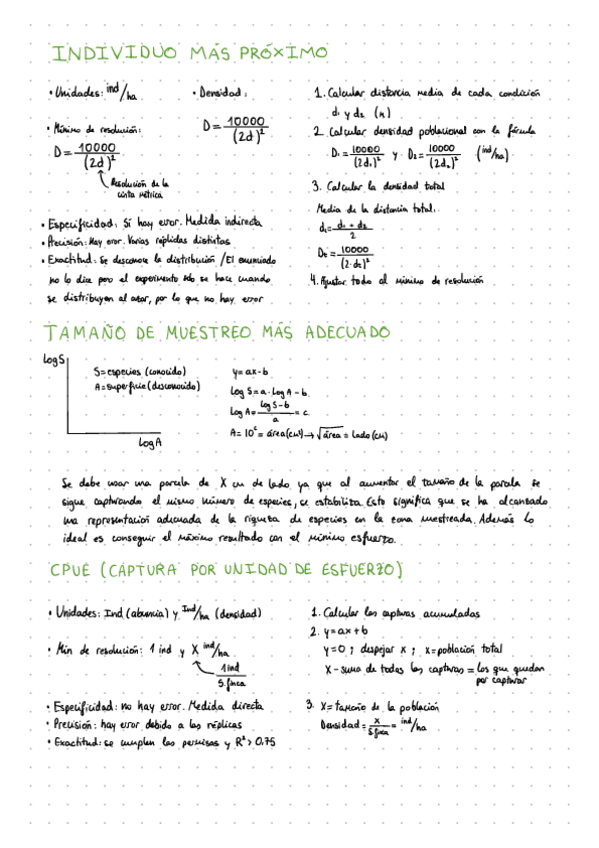 INDIVIDUO MÁS PRÓXIMO
• Unidades: ind/ha
• Mínimo de resolución:
D = 10000 / (2d)²
Resolución de la cinta métrica
• Densidad:
D = 10000 / (2d)²
• Especificidad: Sí hay error. Medida indirecta
• Precisión: Hay error. Varias réplicas distintas
• Exactitud: Se desconoce la distribución / El enunciado
no lo dice pero el experimento sólo se hace cuando
se distribuyen al azar, por lo que no hay error
1. Calcular distancia media de cada condición
d₁ y d₂ (m)
2. Calcular densidad poblacional con la fórmula
D₁ = 10000 / (2d₁)² y D₂ = 10000 / (2d₂)² (ind/ha)
3. Calcular la densidad total
Media de la distancia total:
dₜ = d₁ + d₂ / 2
Dₜ = 10000 / (2·dₜ)²
4. Ajustar todo al mínimo de resolución
TAMAÑO DE MUESTREO MÁS ADECUADO
Log S
Log A
S = especies (conocido)
A = superficie (desconocido)
y = ax - b
Log S = a · Log A - b
Log A = Log S - b / a = c
A = 10ᶜ = área (cm²) → √área = lado (cm)
Se debe usar una parcela de X cm de lado ya que al aumentar el tamaño de la parcela se
sigue capturando el mismo número de especies, se estabiliza. Esto significa que se ha alcanzado
una representación adecuada de la riqueza de especies en la zona muestreada. Además lo
ideal es conseguir el máximo resultado con el mínimo esfuerzo.
CPUE (CAPTURA POR UNIDAD DE ESFUERZO)
• Unidades: Ind (abuncia) y Ind/ha (densidad)
• Min de resolución: 1 ind y X ind/ha
1 ind / S. finca
• Especificidad: no hay error. Medida directa
• Precisión: hay error debido a las réplicas
• Exactitud: se cumplen las permisas y R² > 0,75
1. Calcular las capturas acumuladas
2. y = ax + b
y = 0 ; despejar x ; x = población total
X - suma de todas las capturas = los que quedan
por capturar
3. X = tamaño de la población
Densidad = X / S. finca = ind/ha